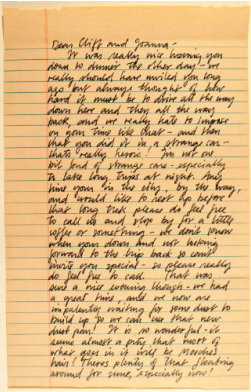 Dear Cliff and Joanna –
It was really nice having you
down to dinner the other day – we
really should have invited you long
ago but always thought of how
hard it must be to drive all the way
down here and then all the way
back and we really hate to impose
on your time like that – and then
that you did it in a strange car –
that's really heroic! I'm not one
but fond of strange cars – especially
to take long trips at night. Any
time you in the city, by the way,
and would like to rest up before
that long trek please do feel free
to call us and stop by for a little
coffee or something – we don't know
when your down and not looking
forward to the trip back so can't
invite you special – so please really
do feel free to call. That was
sure a nice evening though – we had
a great time, and we now are
impatiently waiting for some dust to
build up so we can use that new
dust pan! It is so wonderful – it
seems almost a pity that most of
what goes in it will be Moocher
hair! Theres plenty of that floating
around for sure, especially now!